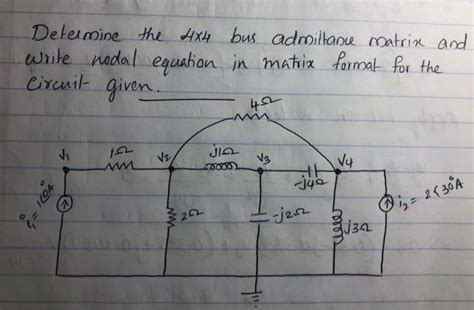 Determine the 4x4 bus admittance matrix and
write nodal equation in matrix format for the
circuit given.
4Ω
V1 1Ω V2 j1Ω V3 -j4Ω V4
i1 = 1∠0°A
2Ω
-j2Ω
j3Ω
i2 = 2∠30°A